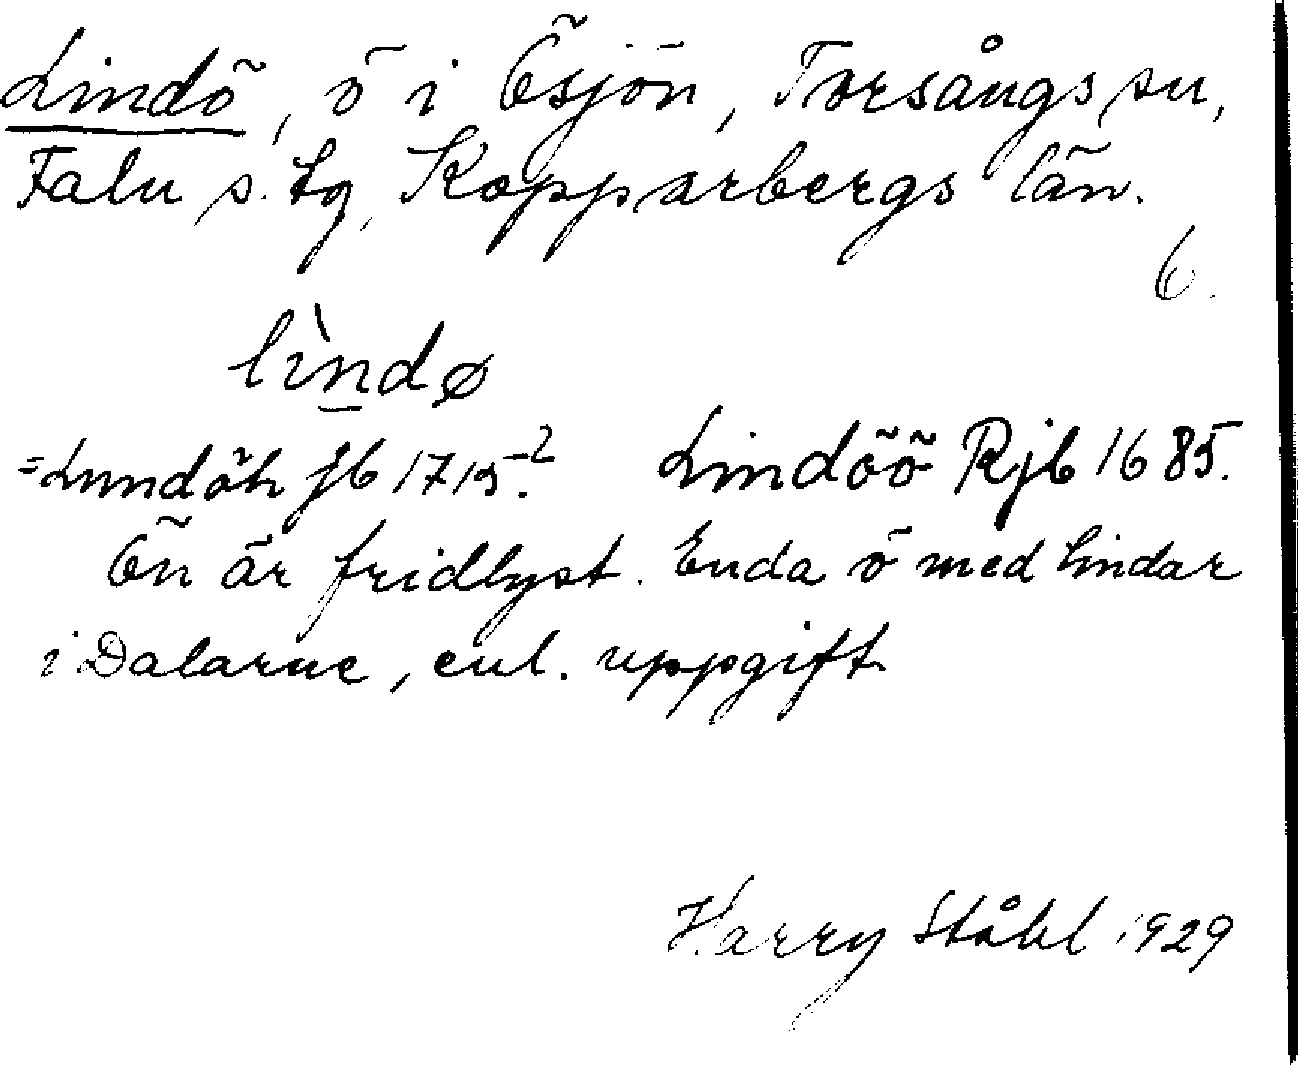 Lindö, ö i Ösjön, Torsångs sn,
Falu s. tg, Kopparbergs län.
6.
lìndø
=Lunnöh Jb 1715.² Lindöö Rjb 1685.
Ön är fridlyst. Enda ö med lindar
i Dalarne, enl. uppgift
Harry Ståhl 1929